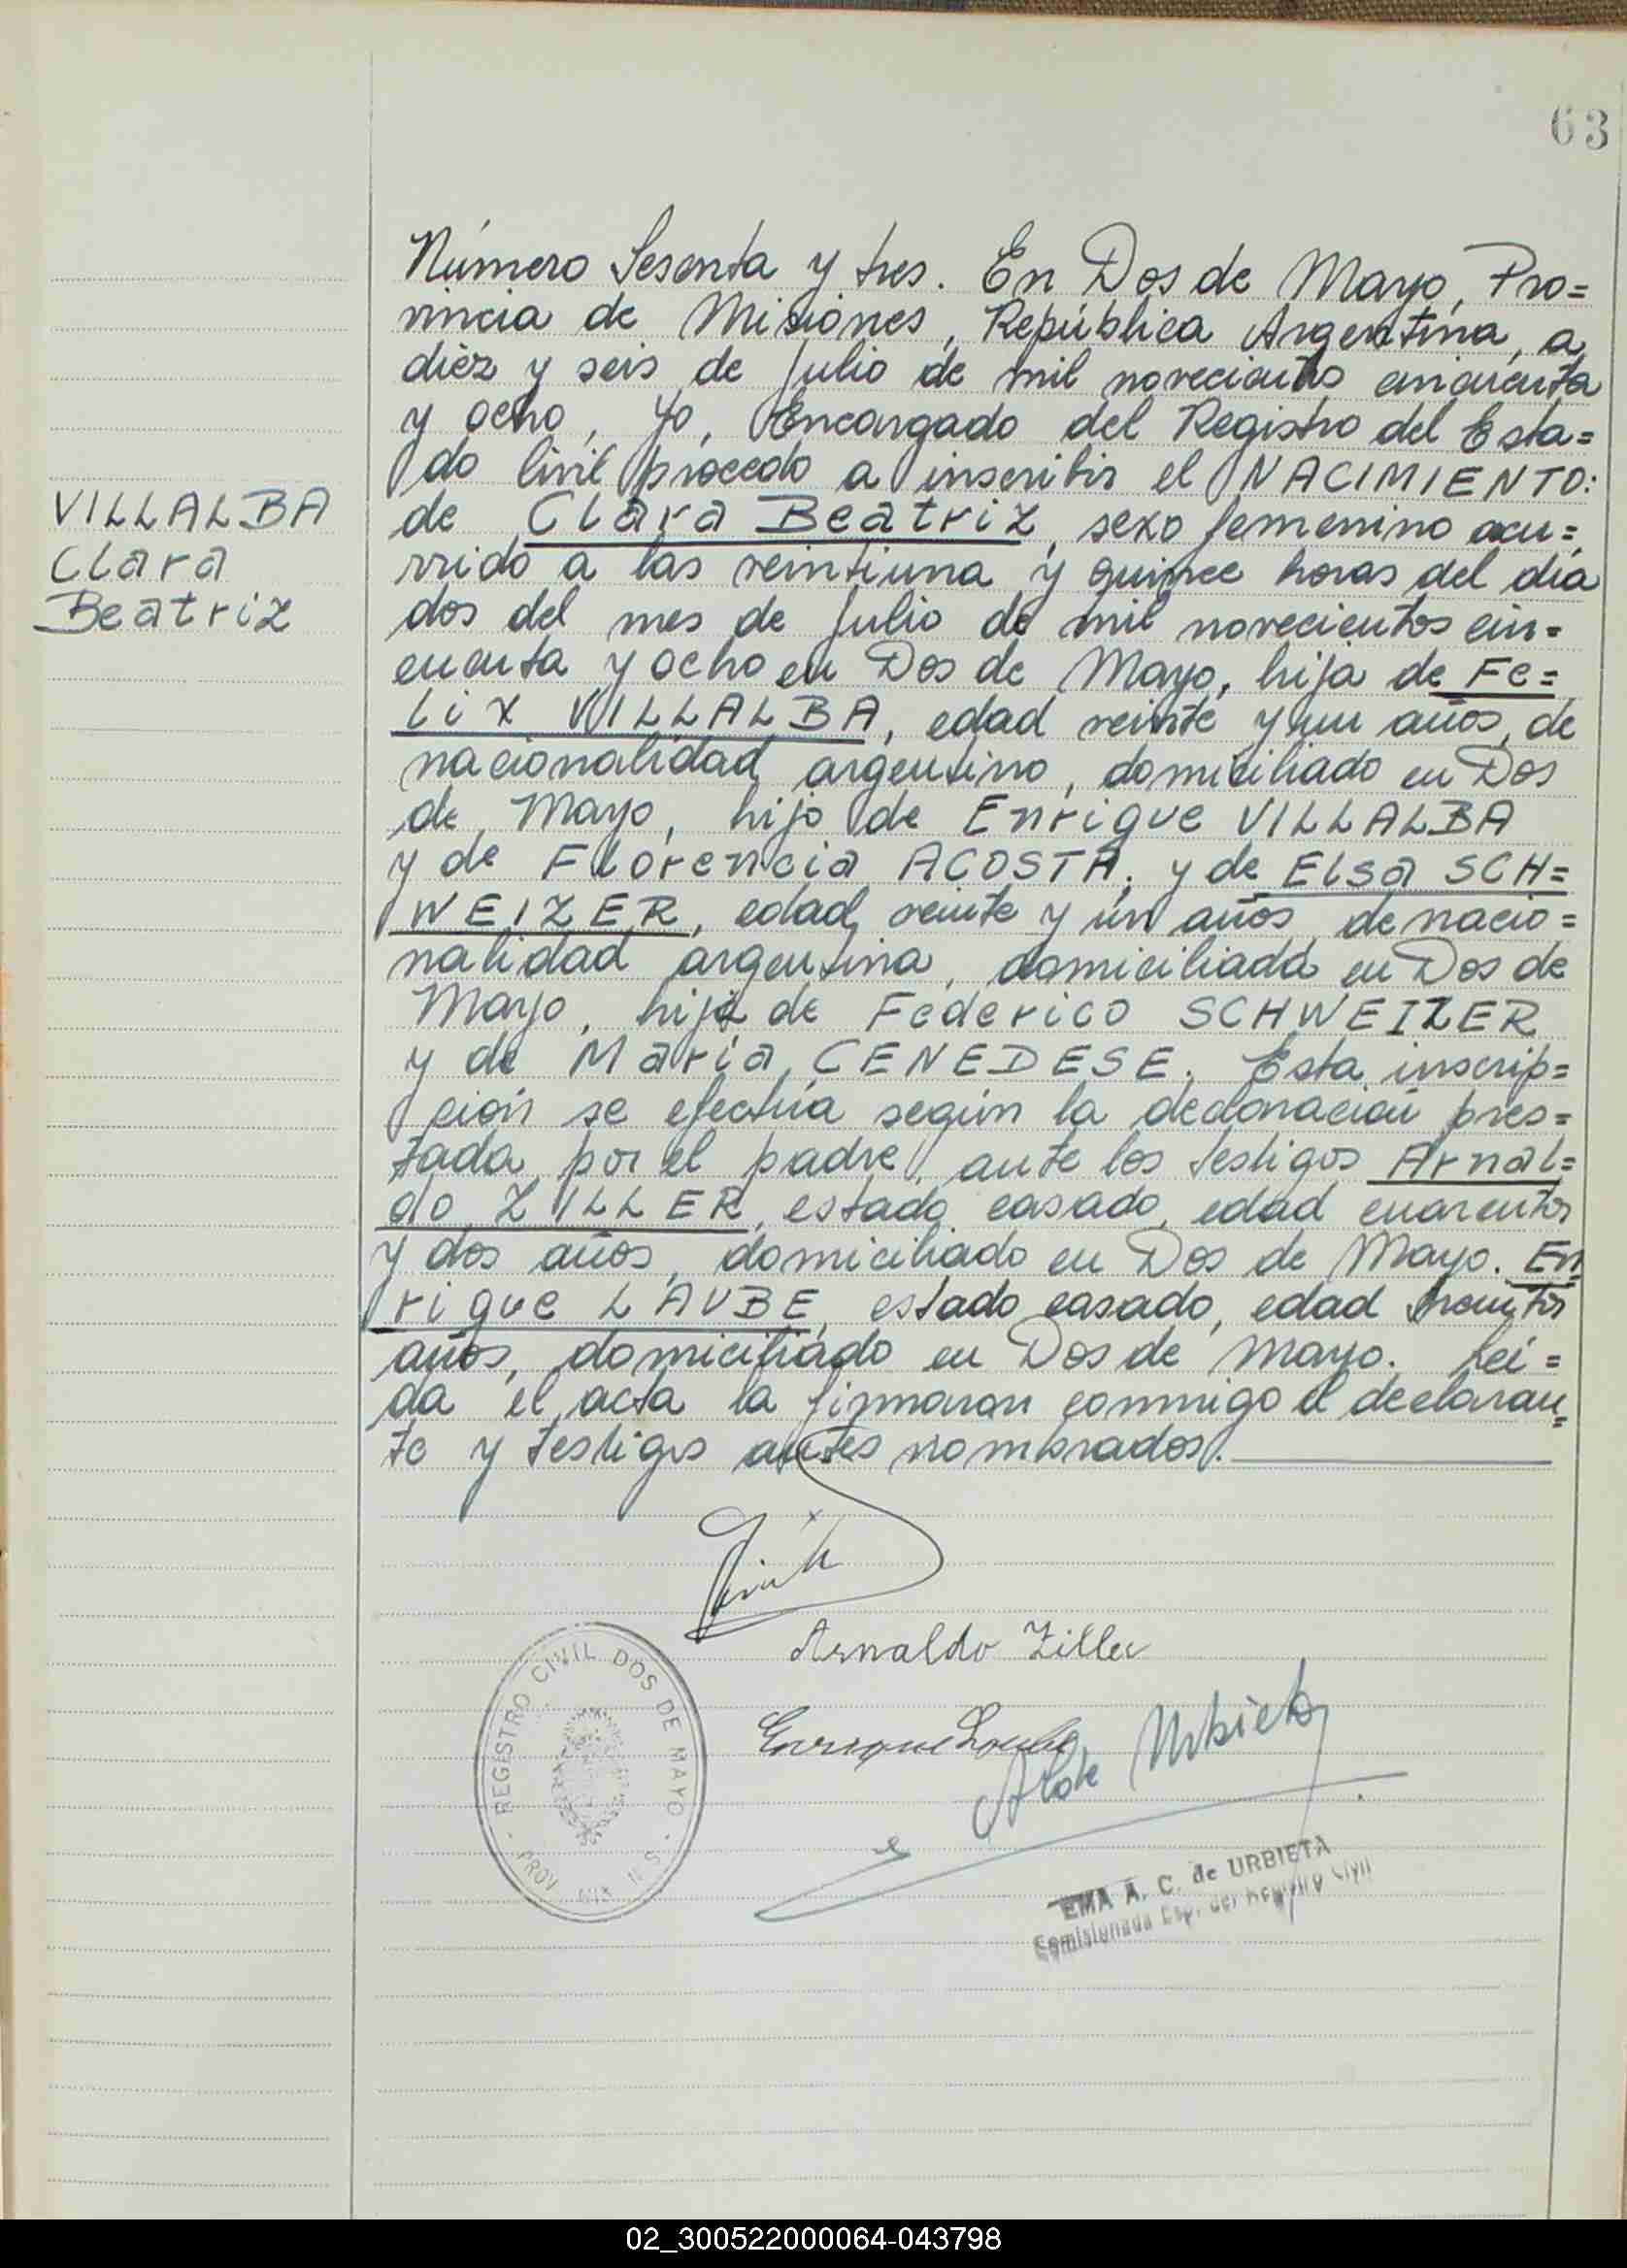 63
Número Sesenta y tres. En Dos de Mayo, Pro=
vincia de Misiones, República Argentina, a
diéz y seis de Julio de mil novecientos cincuenta
y ocho, Yo, Encargado del Registro del Esta=
do Civil procedo a inscribir el NACIMIENTO:
VILLALBA
Clara
Beatriz
de Clara Beatriz, sexo femenino ocu=
rrido a las veintiuna y quince horas del día
dos del mes de Julio de mil novecientos cin=
cuenta y ocho en Dos de Mayo, hija de Fe=
lix VILLALBA, edad veinte y un años, de
nacionalidad argentino, domiciliado en Dos
de Mayo, hijo de Enrique VILLALBA
y de Florencia ACOSTA; y de Elsa SCH=
WEIZER, edad veinte y un años, de nacio=
nalidad argentina, domiciliada en Dos de
Mayo, hija de Federico SCHWEIZER
y de Maria CENEDESE. Esta inscrip=
ción se efectúa según la declaración pres=
tada por el padre, ante los testigos Arnal=
do ZILLER, estado casado, edad cuarenta
y dos años, domiciliado en Dos de Mayo. En
rique LAUBE, estado casado, edad treinta
años, domiciliado en Dos de Mayo. Leí=
da el acta la firmaron conmigo el declaran=
te y testigos antes nombrados.
Arnaldo Ziller
Enrique Laube
de Urbieta
REGISTRO CIVIL DOS DE MAYO
PROV. MIS
EMA A. C. de URBIETA
Comisionada Esp. del Registro Civil
02_300522000064-043798